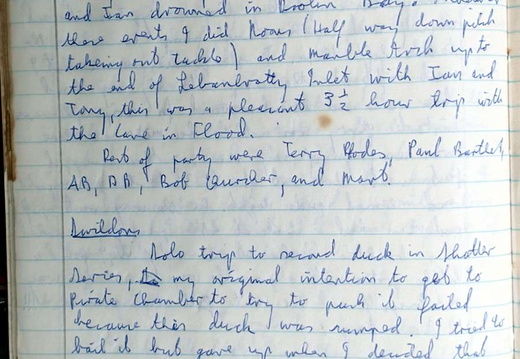 and Ian drowned in Booton Body.
these events I did Noons (Half way down pitch
taking out tackle) and marble Arch up to
the end of Lebanbratty Inlet with Ian and
Tony, this was a pleasant 3½ hour trip with
the Cave in Flood.
Rest of party were Terry Rhodes, Paul Bartlet,
AB, BB, Bob Churcher, and Mart.
Swildons
Solo trip to second duck in Shatter
Series, my original intention to get to
Private Chamber to try to push it failed
because this duck was sumped. I tried to
bail it but gave up when I decided that